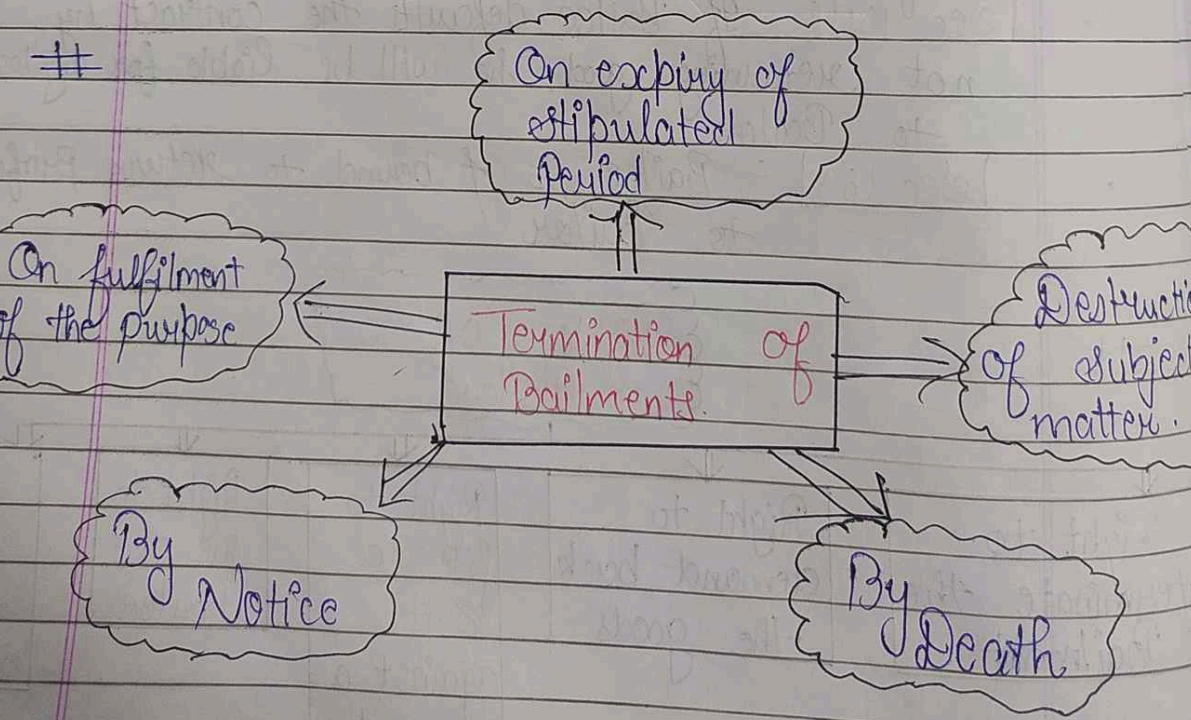 #
On expiry of
stipulated
Period
On fulfilment
of the purpose
Termination of
Bailments.
Destructi
of subjec
matter.
By
Notice
By
Death